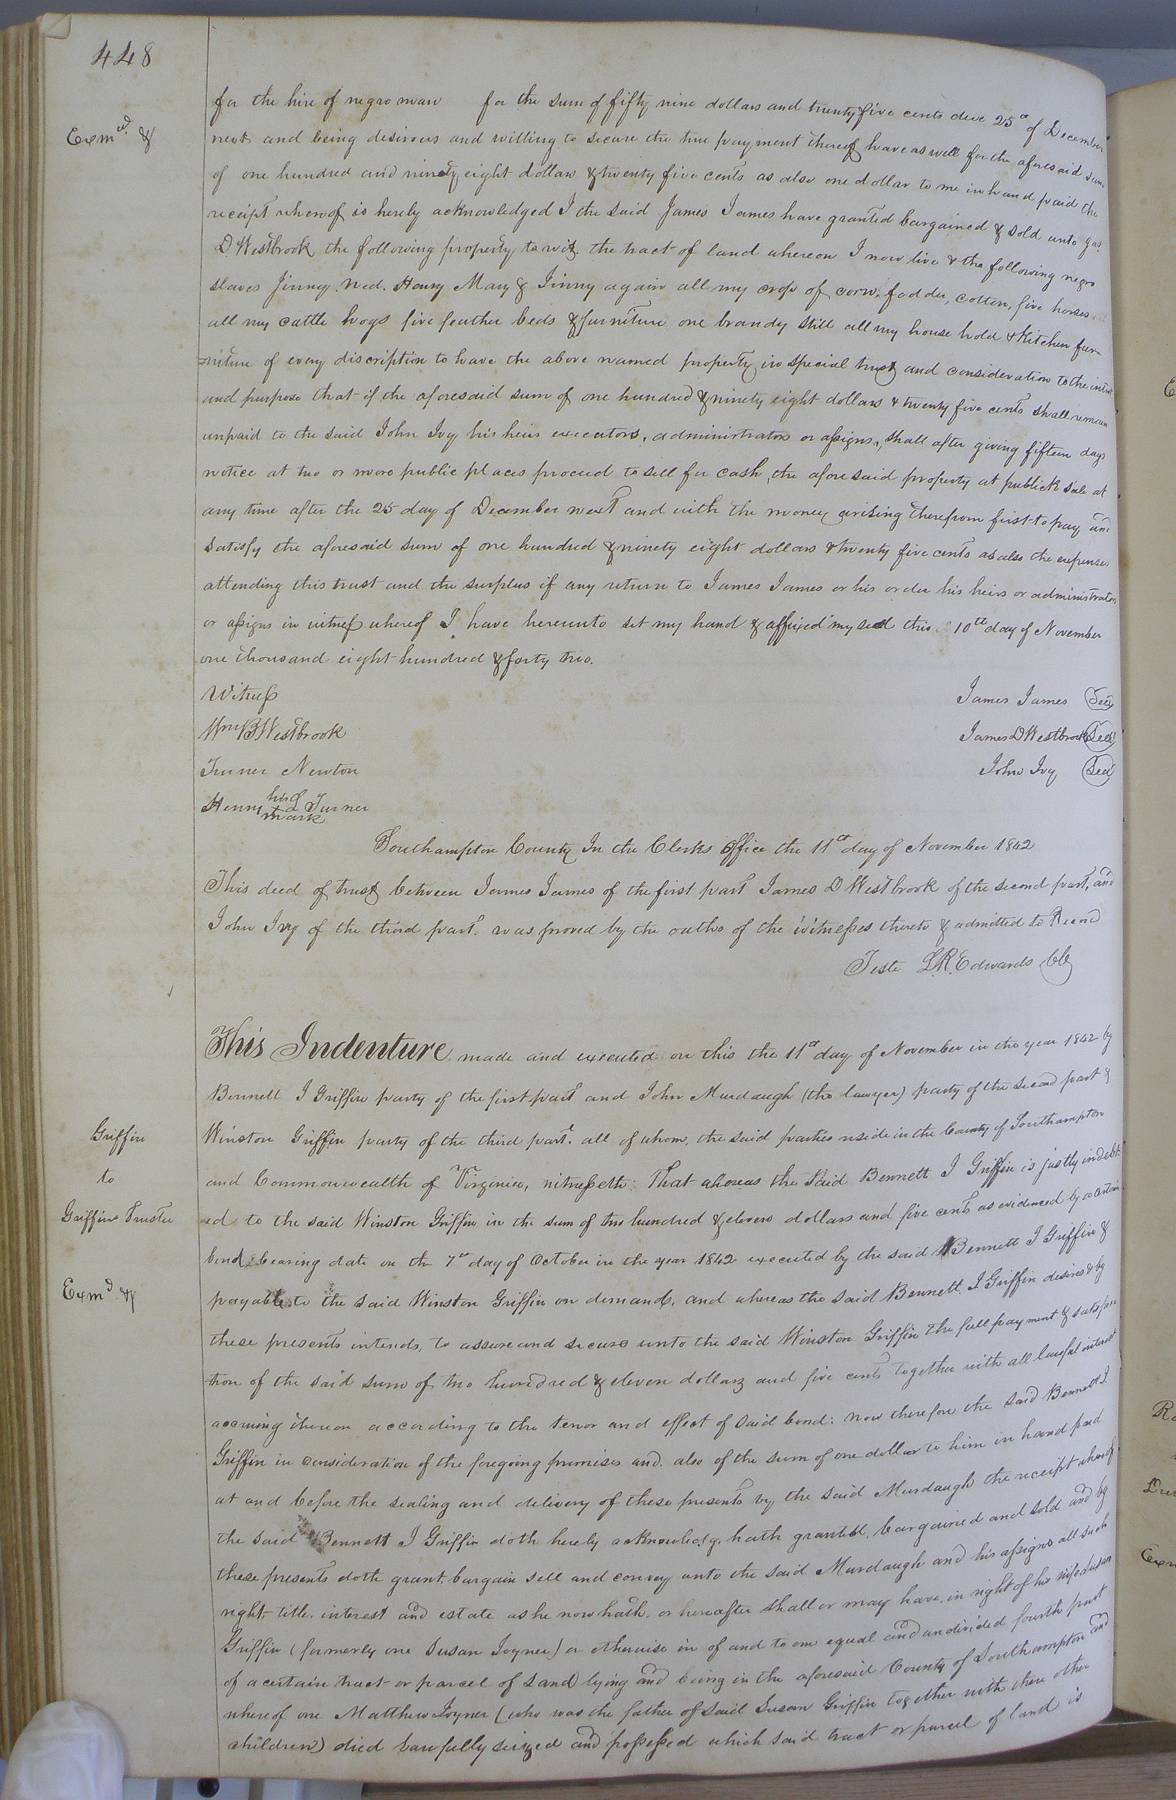 448
for the hire of negro man for the sum of fifty nine dollars and twenty five cents due 25th of December
Exmd. &
next and being desirous and willing to secure the true payment thereof have as well for the aforesaid sum
of one hundred and ninety eight dollars & twenty five cents as also one dollar to me in hand paid the
receipt whereof is hereby acknowledged I the said James James have granted bargained & sold unto Jas.
D. Westbrook the following property to wit, the tract of land whereon I now live & the following negro
slaves Jinny, Ned, Henry Mary & Jinny again all my crop of corn, fodder, cotton, five horses
all my cattle hogs five feather beds & furniture one brandy still all my house hold & Kitchen fur-
niture of every discription to have the above named property in special trust and consideration to the intent
and purpose that if the aforesaid sum of one hundred & ninety eight dollars & twenty five cents shall remain
unpaid to the said John Ivy his heirs executors, administrators or assigns, shall after giving fifteen days
notice at two or more public places proceed to sell for cash, the aforesaid property at publick sale at
any time after the 25 day of December next and with the money arising therefrom first to pay and
satisfy the aforesaid sum of one hundred & ninety eight dollars & twenty five cents as also the expenses
attending this trust and the surplus if any return to James James or his order his heirs or administrators
or assigns in witness whereof I have hereunto set my hand & affixed my seal this 10th day of November
one thousand eight hundred & forty two.
Witness James James Seal
Wm B Westbrook James D Westbrook Seal
Turner Newton John Ivy Seal
Henry his mark Turner
Southampton County In the Clerks Office the 11th day of November 1842
This deed of trust between James James of the first part James D Westbrook of the second part, and
John Ivy of the third part. was proved by the oaths of the witnesses thereto & admitted to Record
Teste L.R. Edwards Clk
This Indenture made and executed on this the 11th day of November in the year 1842 by
Bennett I Griffin party of the first part and John Murdaugh (the lawyer) party of the second part &
Griffin
to
Griffins Trustee
Exmd. &
Winston Griffin party of the third part. all of whom, the said parties reside in the County of Southampton
and Commonwealth of Virginia, witnesseth: That whereas the said Bennett I Griffin is justly indebt-
ed to the said Winston Griffin in the sum of two hundred & eleven dollars and five cents as evidenced by a certain
bond, bearing date on the 7th day of October in the year 1842 executed by the said Bennett I Griffin &
payable to the said Winston Griffin on demand, and whereas the said Bennett I Griffin desires & by
these presents intends, to assure and secure unto the said Winston Griffin the full payment & satisfac
tion of the said sum of two hundred & eleven dollars and five cents together with all lawful interest
accruing thereon according to the tenor and effect of said bond: now therefore the said Bennett I.
Griffin in consideration of the foregoing premises and also of the sum of one dollar to him in hand paid
at and before the sealing and delivery of these presents by the said Murdaugh the receipt whereof
the said Bennett I Griffin doth hereby acknowledge, hath granted, bargained and sold and by
these presents doth grant, bargain sell and convey unto the said Murdaugh and his assigns all such
right title, interest and estate as he now hath, or hereafter shall or may have, in right of his wife Susan
Griffin (formerly one Susan Joyner) or otherwise in of and to one equal and undivided fourth part
of a certain tract or parcel of Land lying and being in the aforesaid County of Southampton and
whereof one Matthew Joyner (who was the father of said Susan Griffin together with three other
children) died lawfully seized and possessed which said tract or parcel of land is